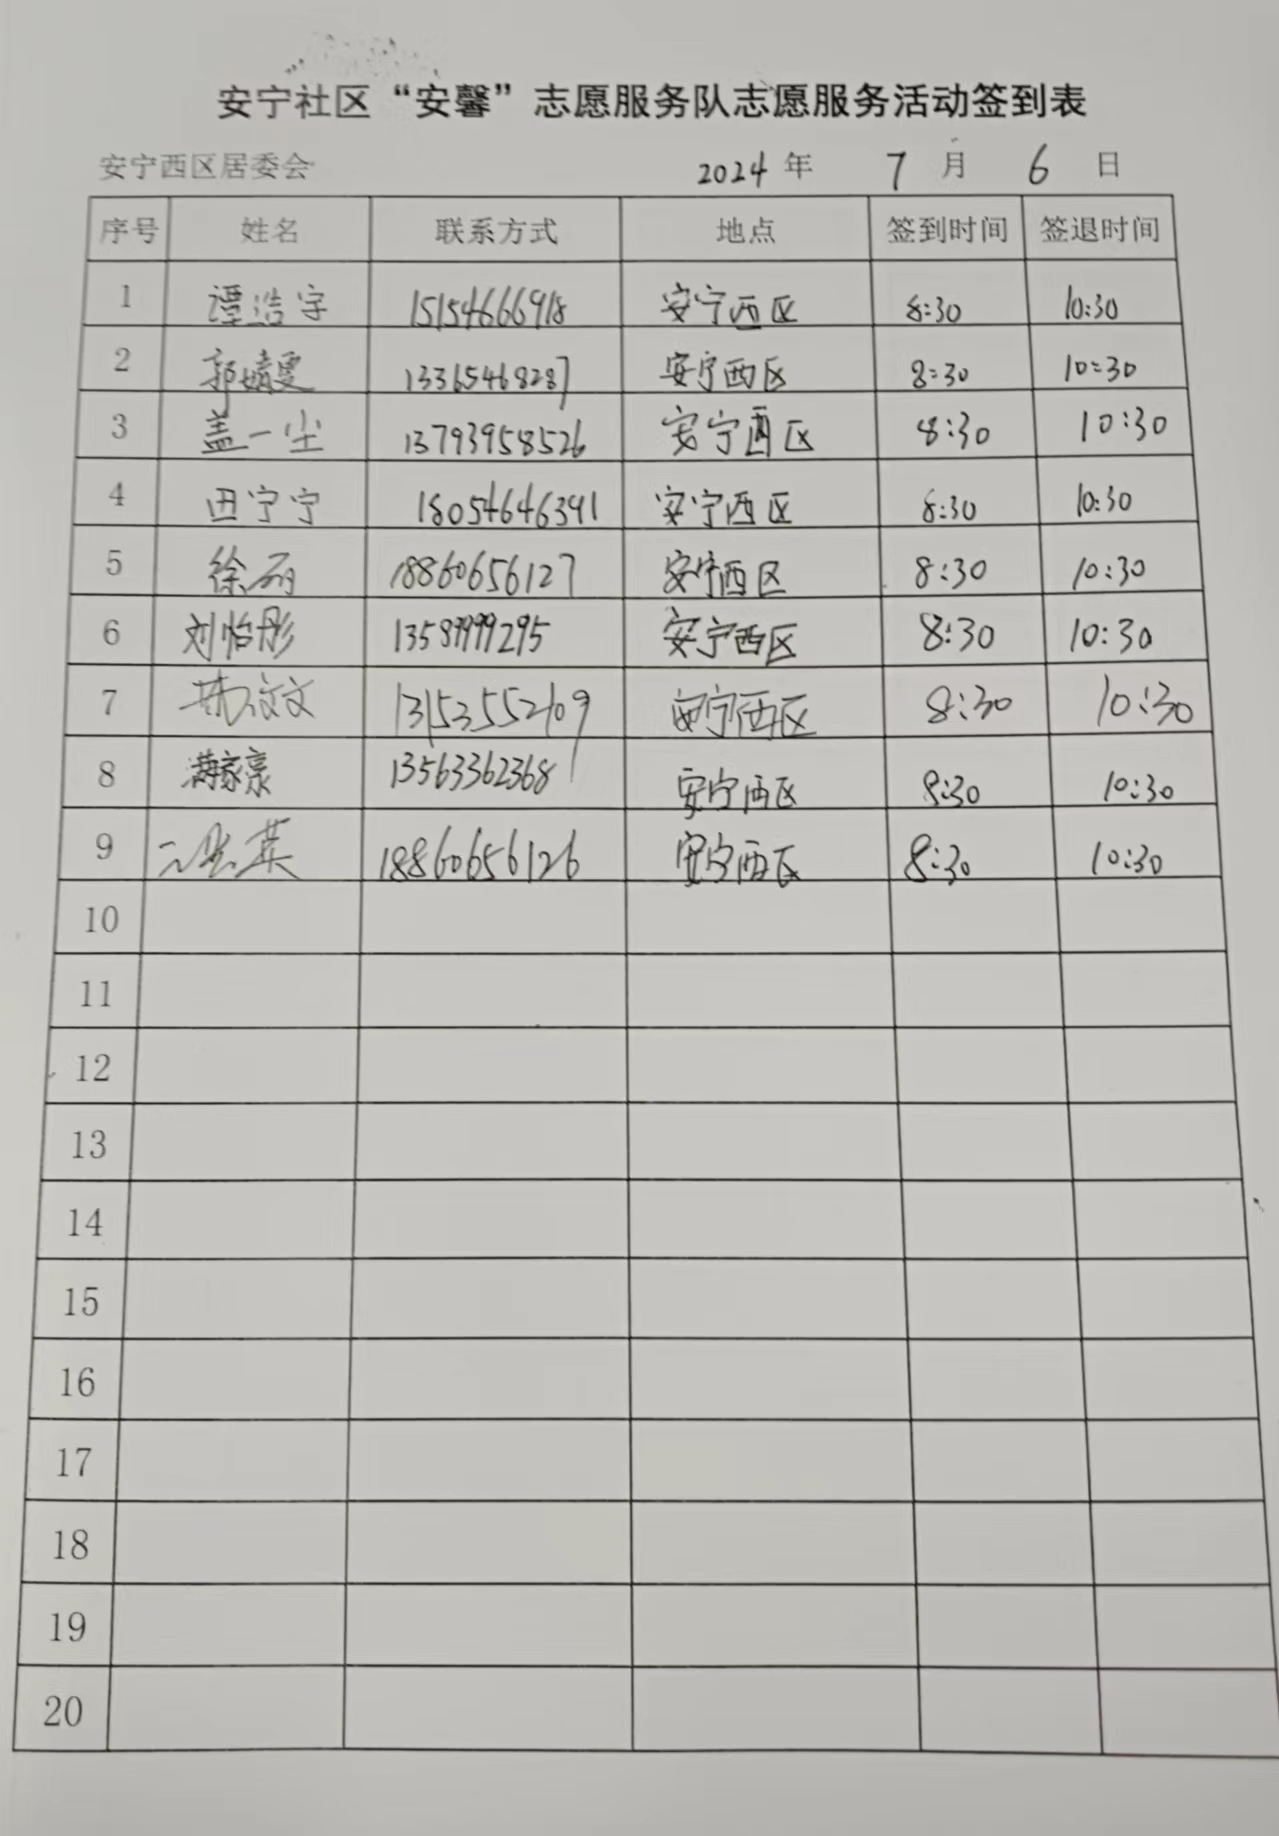 安宁社区“安馨”志愿服务队志愿服务活动签到表
安宁西区居委会 2024年 7月 6日
序号 姓名 联系方式 地点 签到时间 签退时间
1 谭浩宇 15154666918 安宁西区 8:30 10:30
2 郭婧雯 13365468287 安宁西区 8:30 10:30
3 盖一尘 13793958526 安宁西区 8:30 10:30
4 田宁宁 18054646391 安宁西区 8:30 10:30
5 徐丽 18860656127 安宁西区 8:30 10:30
6 刘怡彤 13589999295 安宁西区 8:30 10:30
7 13153552109 安宁西区 8:30 10:30
8 满家豪 13563362368 安宁西区 8:30 10:30
9 18860656126 安宁西区 8:30 10:30
10
11
12
13
14
15
16
17
18
19
20